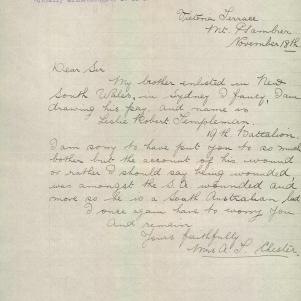 Victoria Terrace
Mt. Gambier
November 19th
Dear Sir
My brother enlisted in New
South Wales, in Sydney I fancy, I am
drawing his pay. And name is
Leslie Robert Templeman.
19th Battalion.
I am sorry to have put you to so much
bother but the account of his wound
or rather I should say being wounded,
was amongst the S.A. wounded and
more so he is a South Australian lad
I once again have to worry you
And remain
Yours faithfully
Mrs A. L. Chester.